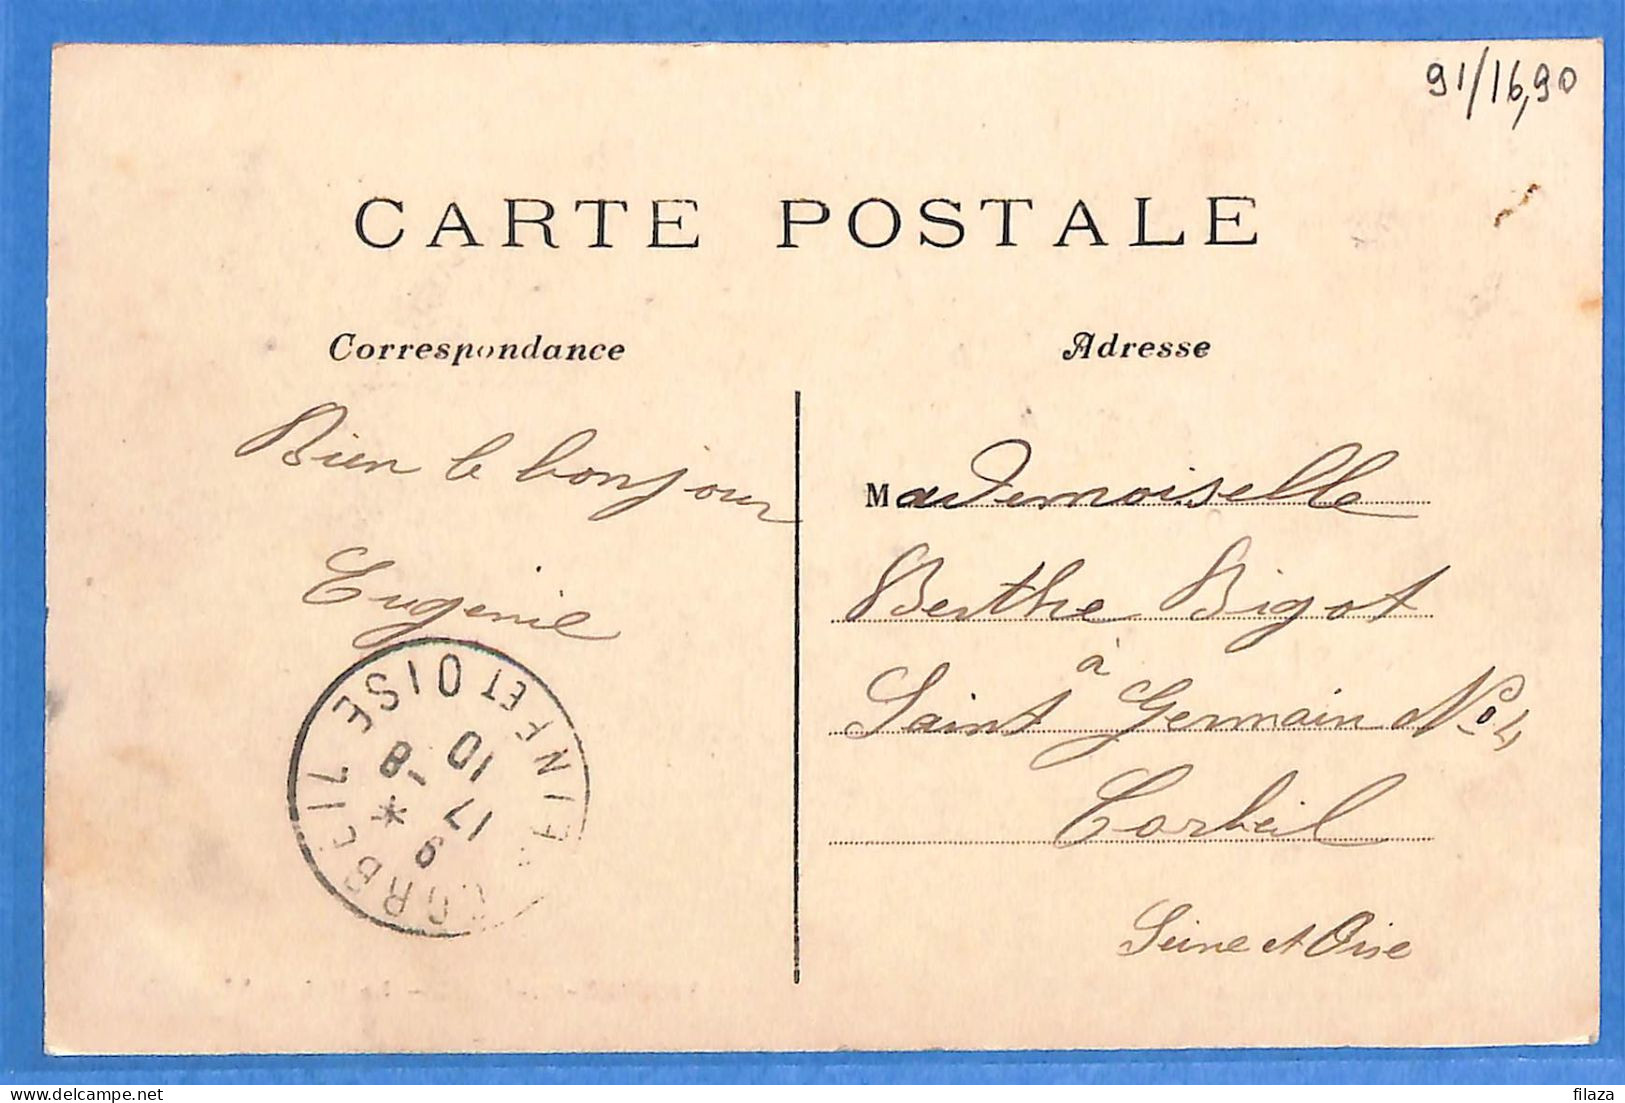 91/16,90
CARTE POSTALE
Correspondance
Adresse
Bien le bonjour
Eugenie
Mademoiselle
Berthe Bigot
à
Saint Germain No 4
Corbeil
Seine et Oise
CORBEIL SEINE ET OISE
8 *
10
17
9
filaza